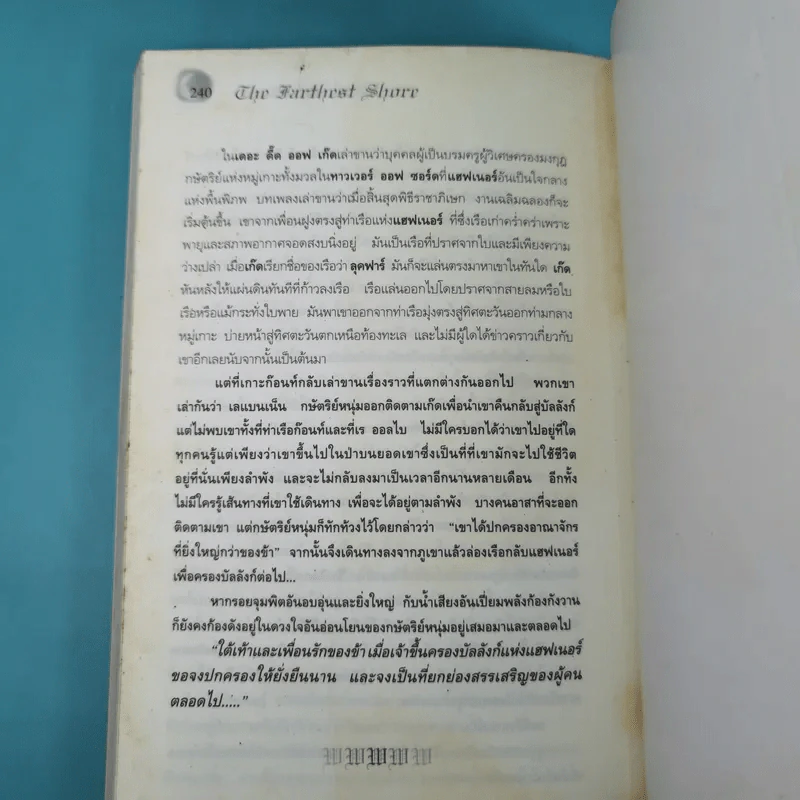 240 The Farthest Shore
ในเดอะ ดี๊ด ออฟ เก๊ดเล่าขานว่าบุคคลผู้เป็นบรมครูผู้วิเศษครองมงกุฎ
กษัตริย์แห่งหมู่เกาะทั้งมวลในทาวเวอร์ ออฟ ซอร์ดที่แฮฟเนอร์อันเป็นใจกลาง
แห่งพื้นพิภพ บทเพลงเล่าขานว่าเมื่อสิ้นสุดพิธีราชาภิเษก งานเฉลิมฉลองก็จะ
เริ่มต้นขึ้น เขาจากเพื่อนฝูงตรงสู่ท่าเรือแห่งแฮฟเนอร์ ที่ซึ่งเรือเก่าคร่ำคร่าเพราะ
พายุและสภาพอากาศจอดสงบนิ่งอยู่ มันเป็นเรือที่ปราศจากใบและมีเพียงความ
ว่างเปล่า เมื่อเก๊ดเรียกชื่อของเรือว่า ลุคฟาร์ มันก็จะแล่นตรงมาหาเขาในทันใด เก๊ด
หันหลังให้แผ่นดินทันทีที่ก้าวลงเรือ เรือแล่นออกไปโดยปราศจากสายลมหรือใบ
เรือหรือแม้กระทั่งใบพาย มันพาเขาออกจากท่าเรือมุ่งตรงสู่ทิศตะวันออกท่ามกลาง
หมู่เกาะ บ่ายหน้าสู่ทิศตะวันตกเหนือท้องทะเล และไม่มีผู้ใดได้ข่าวคราวเกี่ยวกับ
เขาอีกเลยนับจากนั้นเป็นต้นมา
แต่ที่เกาะก๊อนท์กลับเล่าขานเรื่องราวที่แตกต่างกันออกไป พวกเขา
เล่ากันว่า เลแบนเน็น กษัตริย์หนุ่มออกติดตามเก๊ดเพื่อนำเขาคืนกลับสู่บัลลังก์
แต่ไม่พบเขาทั้งที่ท่าเรือก๊อนท์และที่เร ออลไบ ไม่มีใครบอกได้ว่าเขาไปอยู่ที่ใด
ทุกคนรู้แต่เพียงว่าเขาขึ้นไปในป่าบนยอดเขาซึ่งเป็นที่ที่เขามักจะไปใช้ชีวิต
อยู่ที่นั่นเพียงลำพัง และจะไม่กลับลงมาเป็นเวลาอีกนานหลายเดือน อีกทั้ง
ไม่มีใครรู้เส้นทางที่เขาใช้เดินทาง เพื่อจะได้อยู่ตามลำพัง บางคนอาสาที่จะออก
ติดตามเขา แต่กษัตริย์หนุ่มก็ทักท้วงไว้โดยกล่าวว่า “เขาได้ปกครองอาณาจักร
ที่ยิ่งใหญ่กว่าของข้า” จากนั้นจึงเดินทางลงจากภูเขาแล้วล่องเรือกลับแฮฟเนอร์
เพื่อครองบัลลังก์ต่อไป...
หากรอยจุมพิตอันอบอุ่นและยิ่งใหญ่ กับน้ำเสียงอันเปี่ยมพลังก้องกังวาน
ก็ยังคงก้องดังอยู่ในดวงใจอันอ่อนโยนของกษัตริย์หนุ่มอยู่เสมอมาและตลอดไป
“ใต้เท้าและเพื่อนรักของข้า เมื่อเจ้าขึ้นครองบัลลังก์แห่งแฮฟเนอร์
ขอจงปกครองให้ยั่งยืนนาน และจงเป็นที่ยกย่องสรรเสริญของผู้คน
ตลอดไป.....”